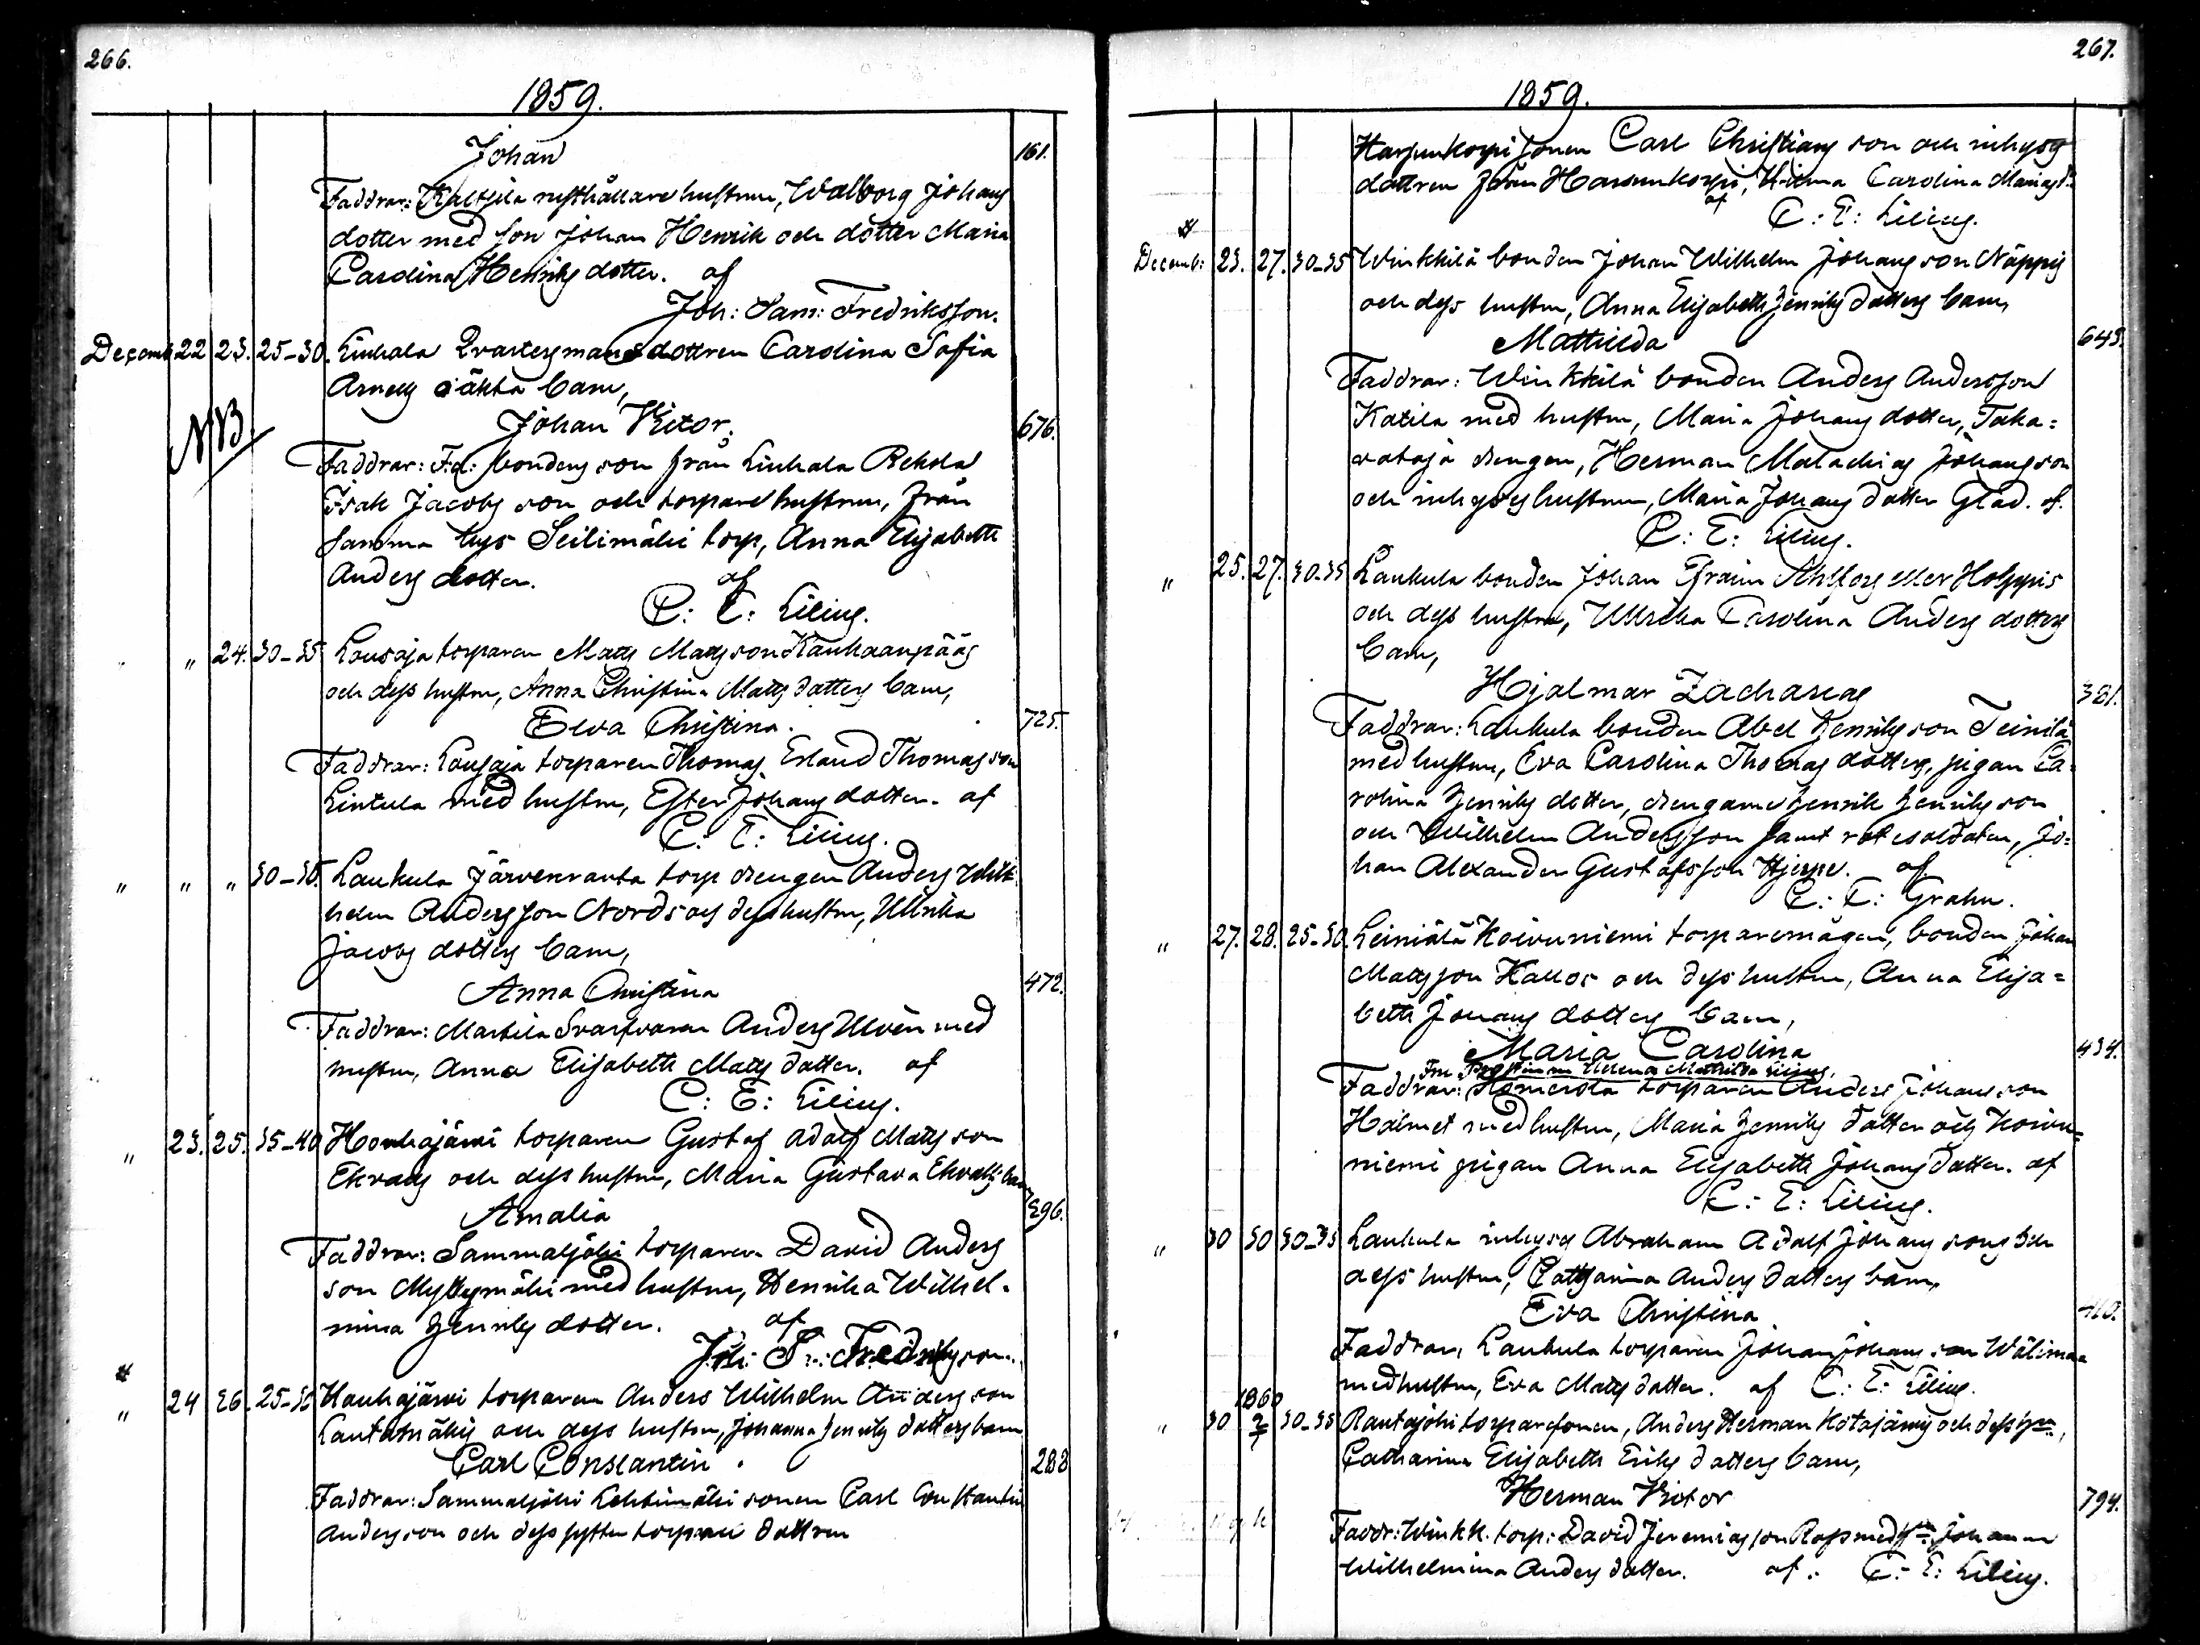 266.
1859.
Johan 161.
Faddrar: Kalkila rusthållare hustrun, Walborg Johans
dotter med son Johan Henrik och dotter Maria
Carolina Henriks dotter. af
Joh: Sam: Fredriksson.
Decemb 22 23. 25-30. Liuhala Qvartersmansdottren Carolina Sofia
oäkta barn,
NB. Johan Victor. 676.
Faddrar: F.d: bondens son från Liuhala Rekola
Isak Jacobs son och torpare hustrun, från
samma bys Seilimäki torp, Anna Elisabeth
Anders dotter. af
C: E: Lilius.
" 24. 30-35 Lousaja torparen Matts Matts son Kauhaanpääs
och dess hustru, Anna Christina Matts dotters barn,
Ewa Christina. 725.
Faddrar: Lousaja torparen Thomas Erland Thomas son
Lintula med hustru, Ester Johans dotter. af
C: E: Lilius.
" " " 30-35. Laukula Järvenranta torp drengen Anders Wilh-
helm Andersson Nords och dess hustru, Ullrika
Jacobs dotters barn,
Anna Christina 472.
Faddrar: Martila Svarfvaren Anders Ulvén med
hustru, Anna Elisabeth Matts dotter. af
C: E: Lilius.
" 23. 25. 35-40 Honkajärvi torparen Gustaf Adolf Matts son
Ekvalls och dess hustru, Maria Gustava Ekvalls barn,
Amalia 296.
Faddrar: Sammaljoki torparen David Anders
son Myllymäki med hustru, Henrika Wilhel-
mina Henriks dotter. af
Joh: S: Fredriksson.
" 24 26. 25-30 Kauhajärvi torparen Anders Wilhelm Anders son
Lautamäkis och dess hustru, Johanna Henriks dotters barn
Carl Constantin. 288
Faddrar: Sammaljoki Lehtimäki sonen Carl Constantin
Andersson och dess syster torpare dottren
267.
1859.
Harjunkorpi sonen Carl Christians son och inhyses
dottren från Harjunkorpi, Wilma Carolina Mariasdr
af
C: E: Lilius.
Decemb: 23. 27. 30-35 Winkkilä bonden Johan Wilhelm Johans son Näppis
och dess hustru, Anna Elisabeth Henriks dotters barn,
Mathilda 643.
Faddrar: Winkkilä bonden Anders Andersson
Katila med hustru, Maria Johans dotter, Taka-
rataja drengen, Herman Malachias Johansson
och inhyses hustrun, Maria Johans dotter Glad. af.
C: E: Lilius.
" 25. 27. 30-35 Laukula bonden Johan Efraim Ahlfors eller Holppis
och dess hustru, Ullrika Carolina Anders dotters
barn,
Hjalmar Zacharias 381.
Faddrar: Laukula bonden Abel Henriks son Teinilä
med hustru, Eva Carolina Thomas dotter, pigan Ca-
rolina Henriks dotter, drengarne Henrik Henriks son
och Wilhelm Andersson samt rotesoldaten, Jo-
han Alexander Gustafsson Hjerpe. af
C: E: Grahn.
" 27. 28. 25-30. Leiniälä Koivuniemi torparemågen, bonden Johan
Matsson Kallos och dess hustru, Anna Elisa-
beth Johans dotters barn,
Maria Carolina 434.
Fru Prostinnan Helena Mathilda Lilius,
Faddrar: torparen Anders Johans son
Halmet med hustru, Maria Henriks dotter och Koivu-
niemi pigan Anna Elisabeth Johans dotter. af
C: E: Lilius.
" 30 30 30-35 Laukula inhyses Abraham Adolf Johans sons och
dess hustru, Catharina Anders dotters barn,
Eva Christina 410.
Faddrar, Laukula torparen Johan Johans son Wälimaa
med hustru, Eva Matts dotter. af C: E: Lilius.
1860
" 30 2/1 30-35 Rautajoki torparesonen, Anders Herman Kotajärvis och dess hu:,
Catharina Elisabeth Eriks dotters barn,
Herman Victor 794.
Faddr: Winkk. torp: David Jeremias son Rops med hu: Johanna
Wilhelmina Anders dotter. af: C: E: Lilius.